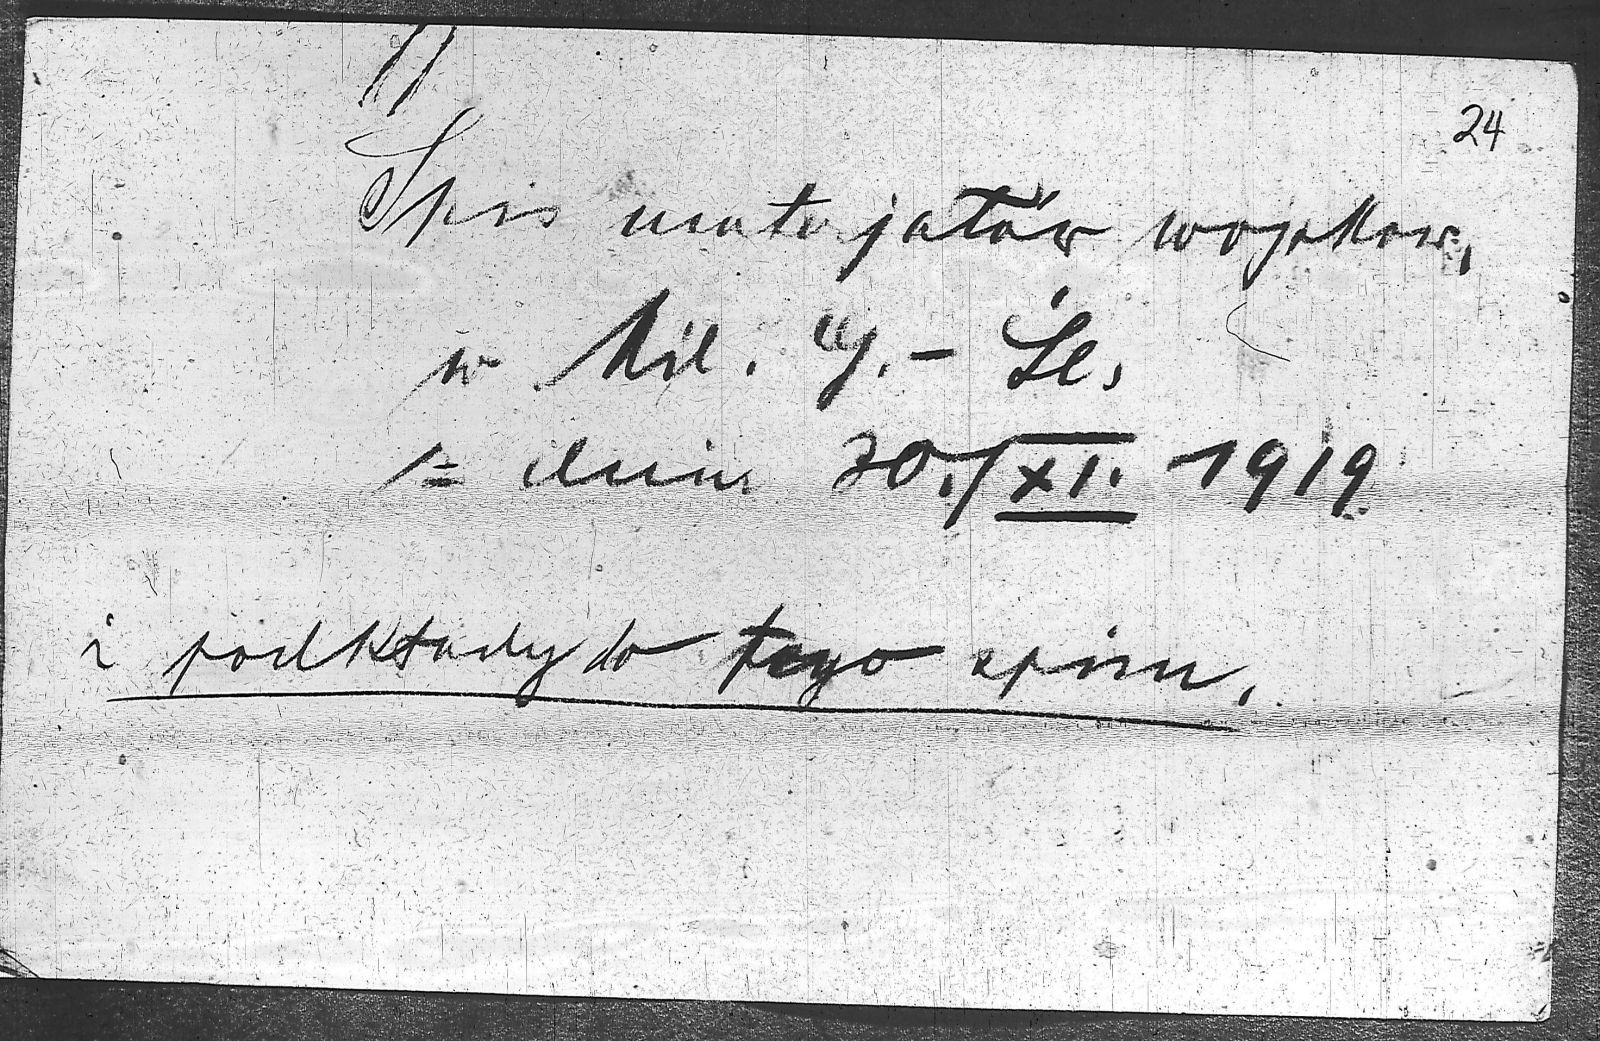 24
Spis materjałów wojskow.
w Mil. G.-Śl.
z dniem 30./XI. 1919
i podkłady do tego spisu.